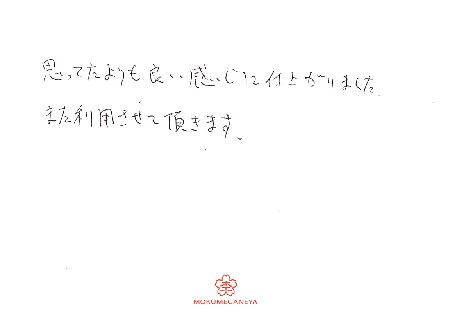 思ってたよりも良い感じに仕上がりました
また利用させて頂きます。
杢
MOKUMEGANEYA